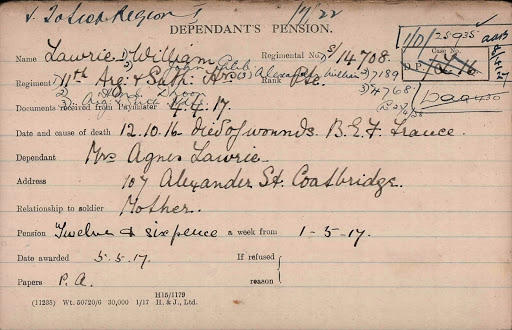 1/1/22
DEPENDANT'S PENSION.
1/D/25935
Name Lawrie 1) William Regimental No. S/14708
Case No.
Regiment 11th Arg. & Suth. Hrs Rank Pte.
Documents received from Paymaster 4.4.17.
Date and cause of death 12.10.16. Died of wounds B.E.F. France.
Dependant Mrs Agnes Lawrie
Address 107 Alexander St. Coatbridge.
Relationship to soldier Mother.
Pension Twelve & sixpence a week from 1-5-17.
Date awarded 5.5.17. If refused
reason
Papers P.A.
H15/1179
(11235) Wt. 50720/6 30,000 1/17 H. & J., Ltd.